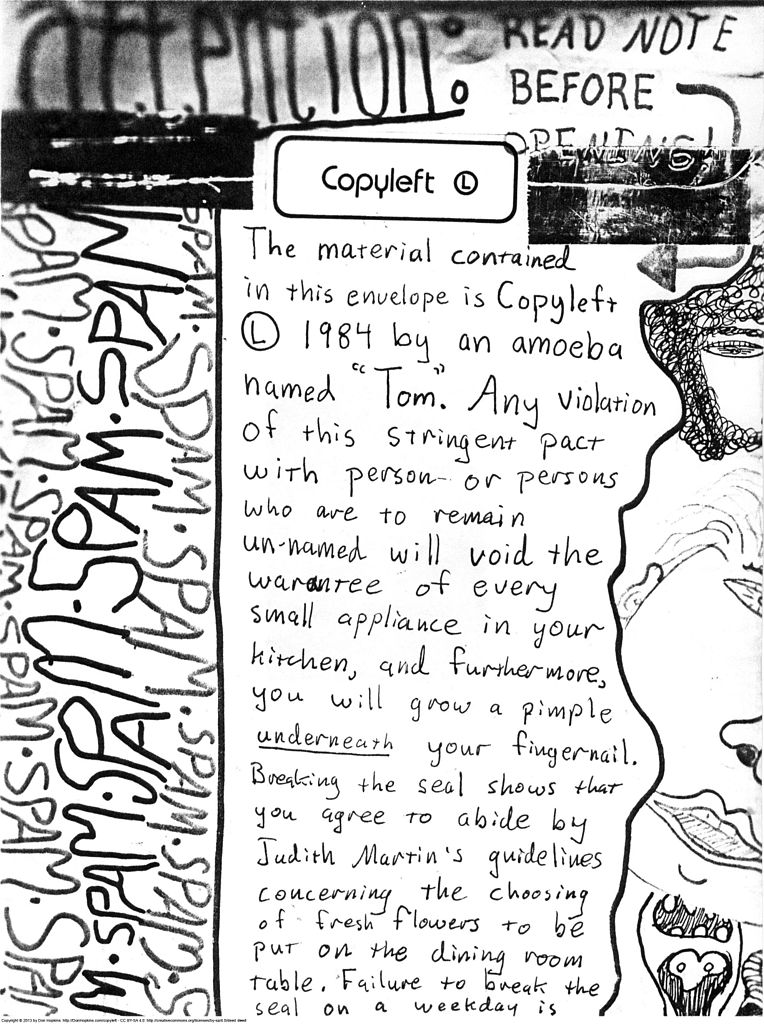 attention:
READ NOTE
BEFORE
OPENING!
Copyleft Ⓛ
The material contained
in this envelope is Copyleft
Ⓛ 1984 by an amoeba
named "Tom." Any violation
of this stringent pact
with person- or persons
who are to remain
un-named will void the
warantee of every
small appliance in your
kitchen, and furthermore,
you will grow a pimple
underneath your fingernail.
Breaking the seal shows that
you agree to abide by
Judith Martin's guidelines
concerning the choosing
of fresh flowers to be
put on the dining room
table. Failure to break the
seal on a weekday is
SPAM·SPAM·SPAM·SPAM·SPAM
SPAM·SPAM·SPAM·SPAM·SPAM
M·SPAM·SPAM·SPAM·SPAM·SPAM
SPAM·SPAM·SPAM·SPAM·SPAM·S
Copyright © 2013 by Don Hopkins. http://DonHopkins.com/copyleft - CC-BY-SA 4.0: http://creativecommons.org/licenses/by-sa/4.0/deed